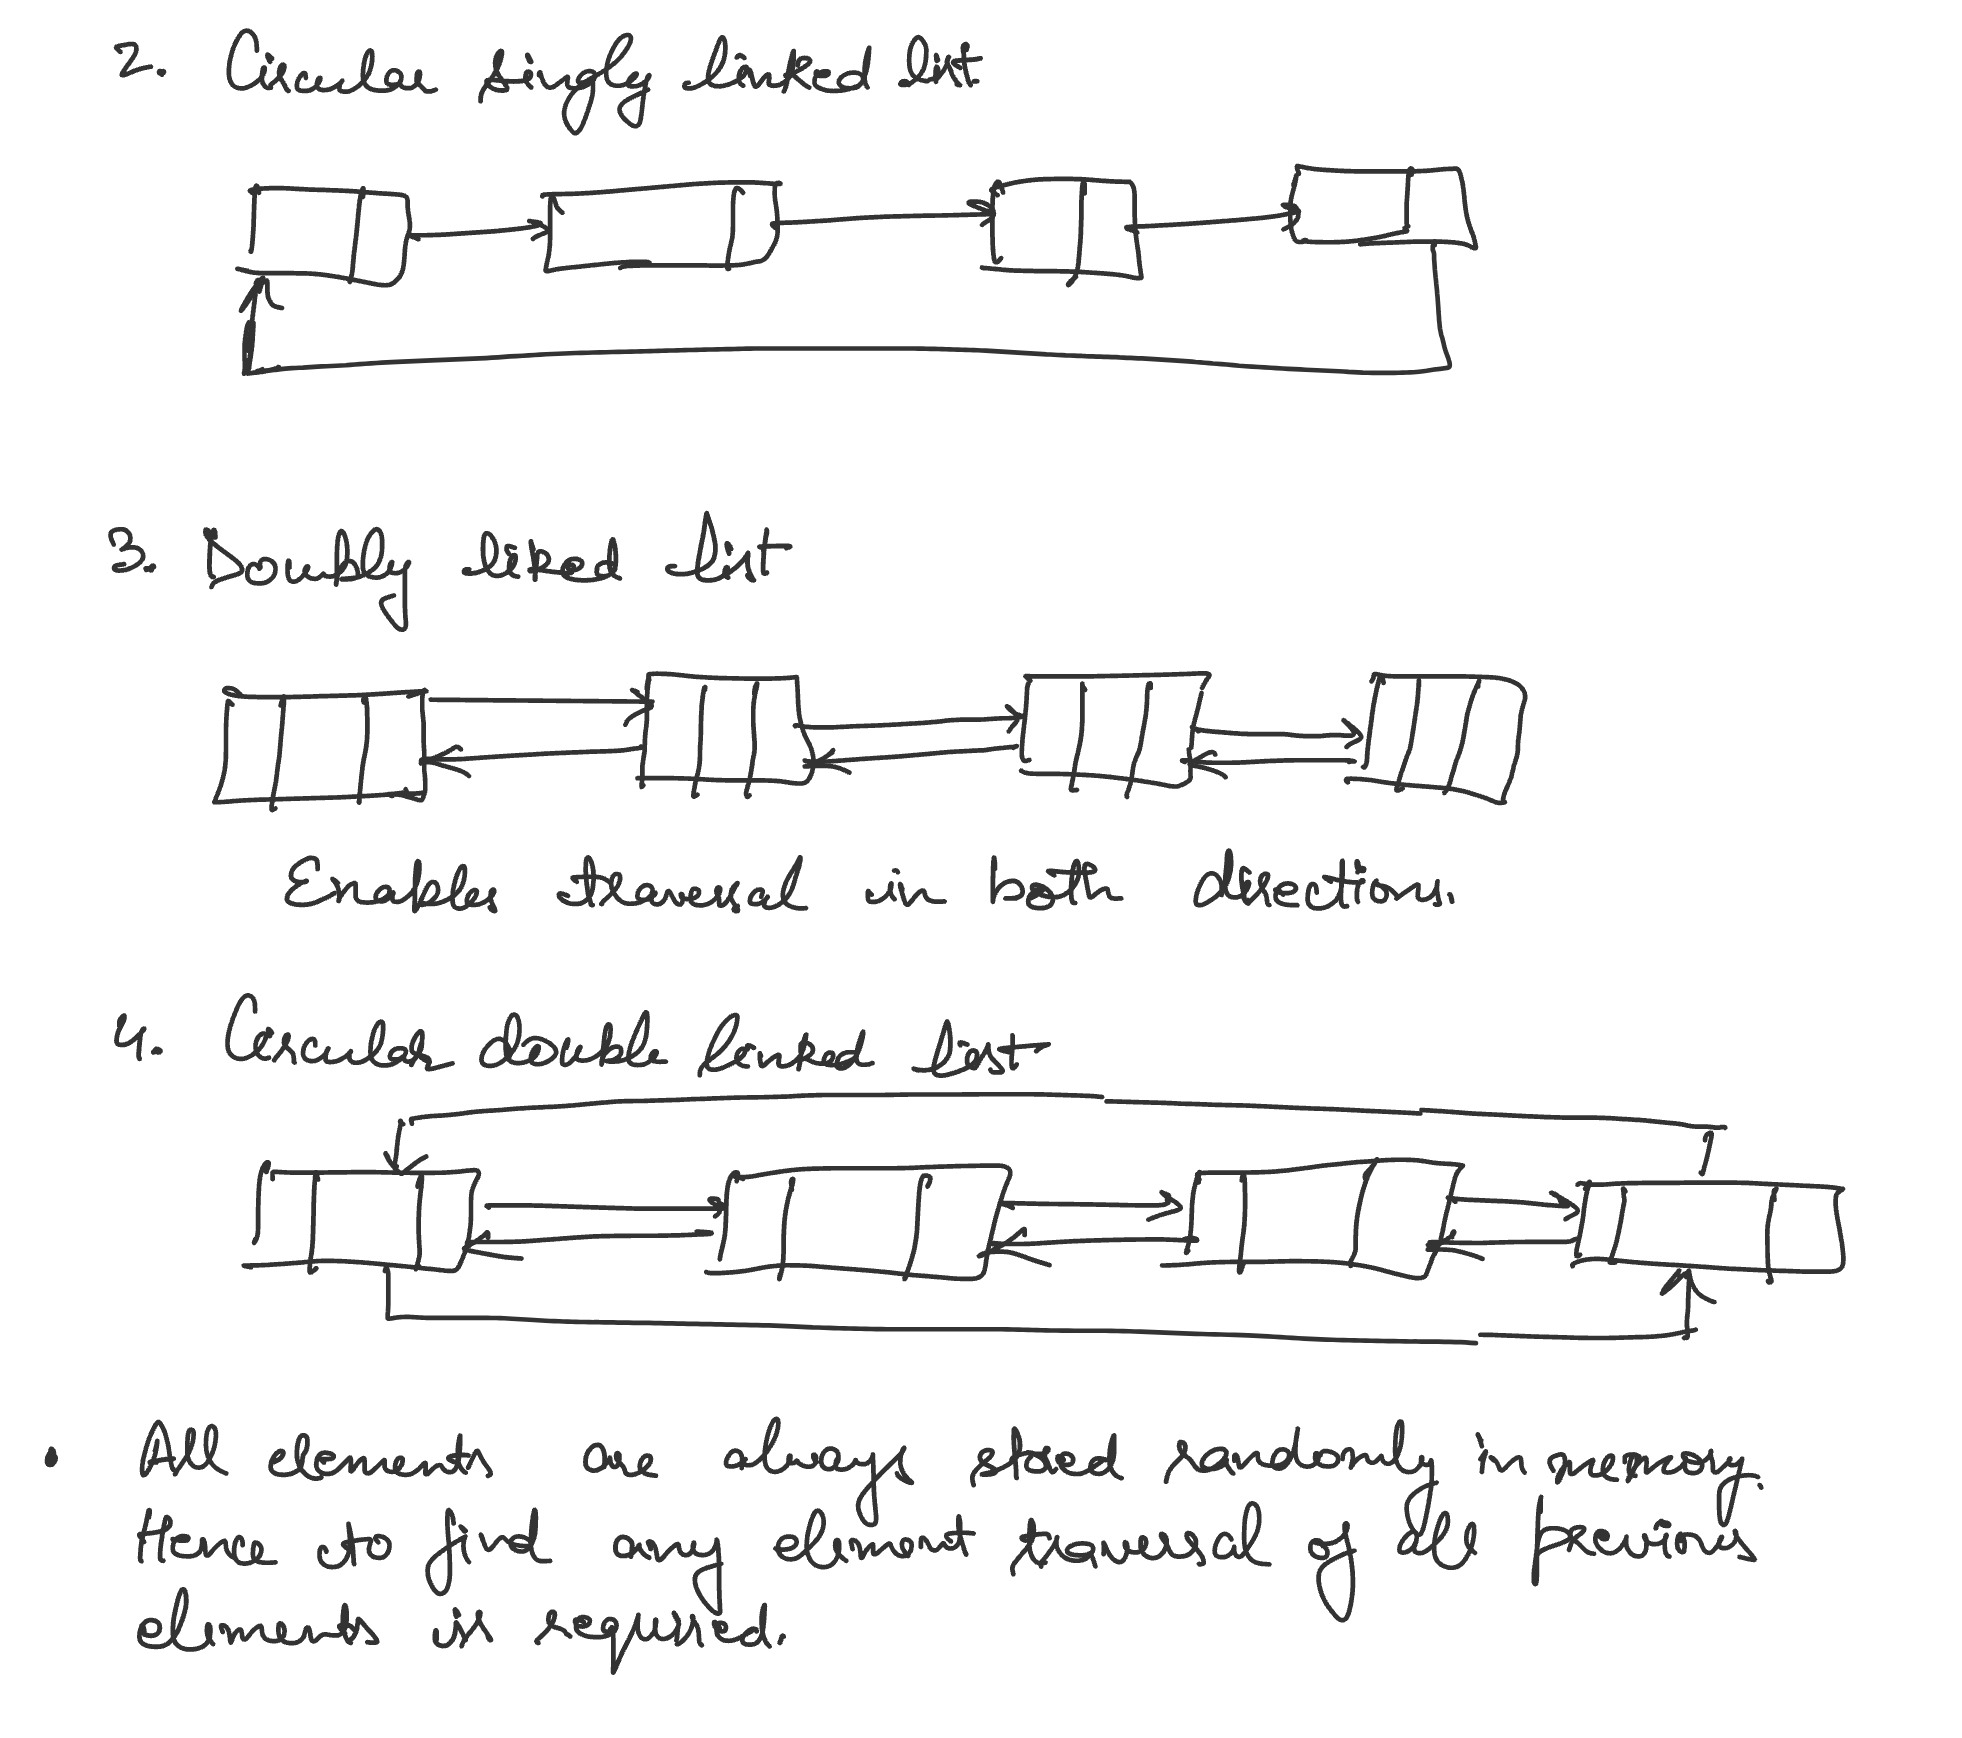 2. Circular singly linked list
3. Doubly liked list
Enables traversal in both directions.
4. Circular double linked list
• All elements are always stored randomly in memory.
Hence to find any element traversal of all previous
elements is required.